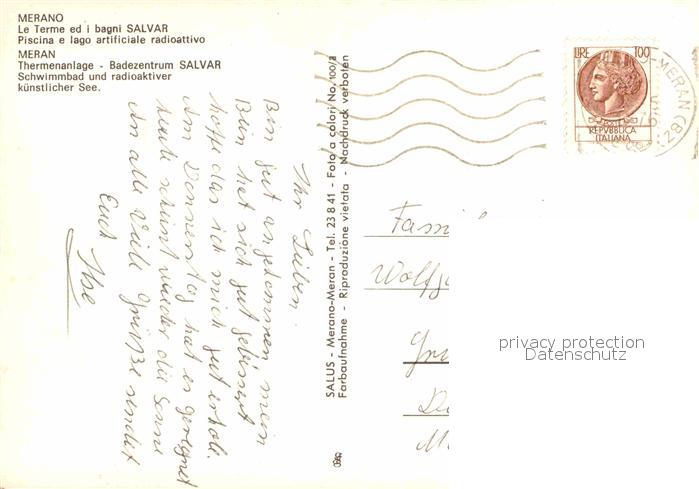 MERANO
Le Terme ed i bagni SALVAR
Piscina e lago artificiale radioattivo
MERAN
Thermenanlage - Badezentrum SALVAR
Schwimmbad und radioaktiver
künstlicher See.
Ihr Lieben.
Bin gut angekommen mein
Bein hat sich gut gebessert
hoffe das ich mich gut erhole.
Am Donnerstag hat es geregnet
heute scheint wieder die Sonne
An alle viele Grüße sendet
Euch Ilse
SALUS - Merano-Meran - Tel. 23841 - Foto a colori No. 100/a
Farbaufnahme - Riproduzione vietata - Nachdruck verboten
LIRE 100
REPVBBLICA
ITALIANA
MERAN (BZ)
Fam
Wolfg
privacy protection
Datenschutz